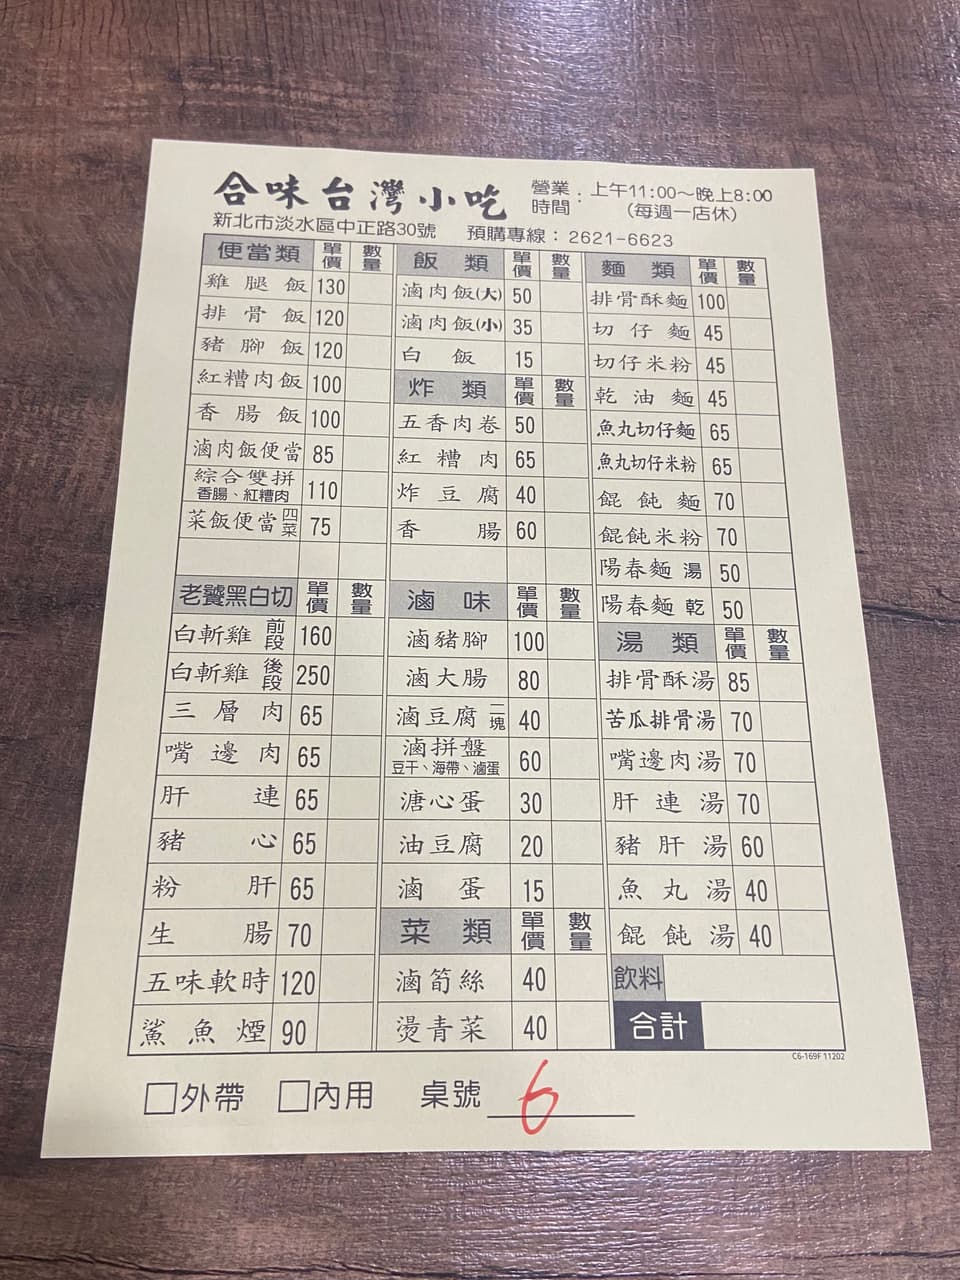 合味台灣小吃
營業時間：上午11:00～晚上8:00
(每週一店休)
新北市淡水區中正路30號 預購專線：2621-6623
便當類 單價 數量
雞腿飯 130
排骨飯 120
豬腳飯 120
紅糟肉飯 100
香腸飯 100
滷肉飯便當 85
綜合雙拼 110
香腸、紅糟肉
菜飯便當 四菜 75
老饕黑白切 單價 數量
白斬雞 前段 160
白斬雞 後段 250
三層肉 65
嘴邊肉 65
肝連 65
豬心 65
粉肝 65
生腸 70
五味軟時 120
鯊魚煙 90
飯類 單價 數量
滷肉飯(大) 50
滷肉飯(小) 35
白飯 15
炸類 單價 數量
五香肉卷 50
紅糟肉 65
炸豆腐 40
香腸 60
滷味 單價 數量
滷豬腳 100
滷大腸 80
滷豆腐 二塊 40
滷拼盤 60
豆干、海帶、滷蛋
溏心蛋 30
油豆腐 20
滷蛋 15
菜類 單價 數量
滷筍絲 40
燙青菜 40
麵類 單價 數量
排骨酥麵 100
切仔麵 45
切仔米粉 45
乾油麵 45
魚丸切仔麵 65
魚丸切仔米粉 65
餛飩麵 70
餛飩米粉 70
陽春麵 湯 50
陽春麵 乾 50
湯類 單價 數量
排骨酥湯 85
苦瓜排骨湯 70
嘴邊肉湯 70
肝連湯 70
豬肝湯 60
魚丸湯 40
餛飩湯 40
飲料
合計
C6-169F 11202
□外帶 □內用 桌號 6